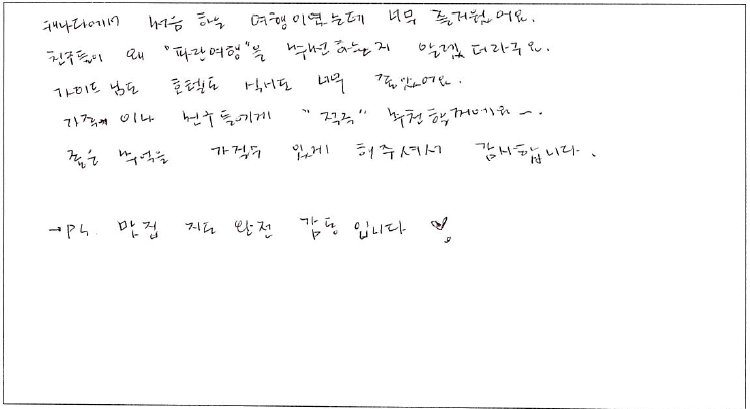 캐나다에서 처음 하는 여행이였는데 너무 즐거웠어요.
친구들이 왜 "파란여행"을 추천하는지 알겠더라구요.
가이드님도 호텔도 식사도 너무 좋았어요.
가족이나 친구들에게 "적극" 추천할꺼에요~.
좋은 추억을 가질수 있게 해주셔서 감사합니다.
→ps. 맛집 지도 완전 감동입니다